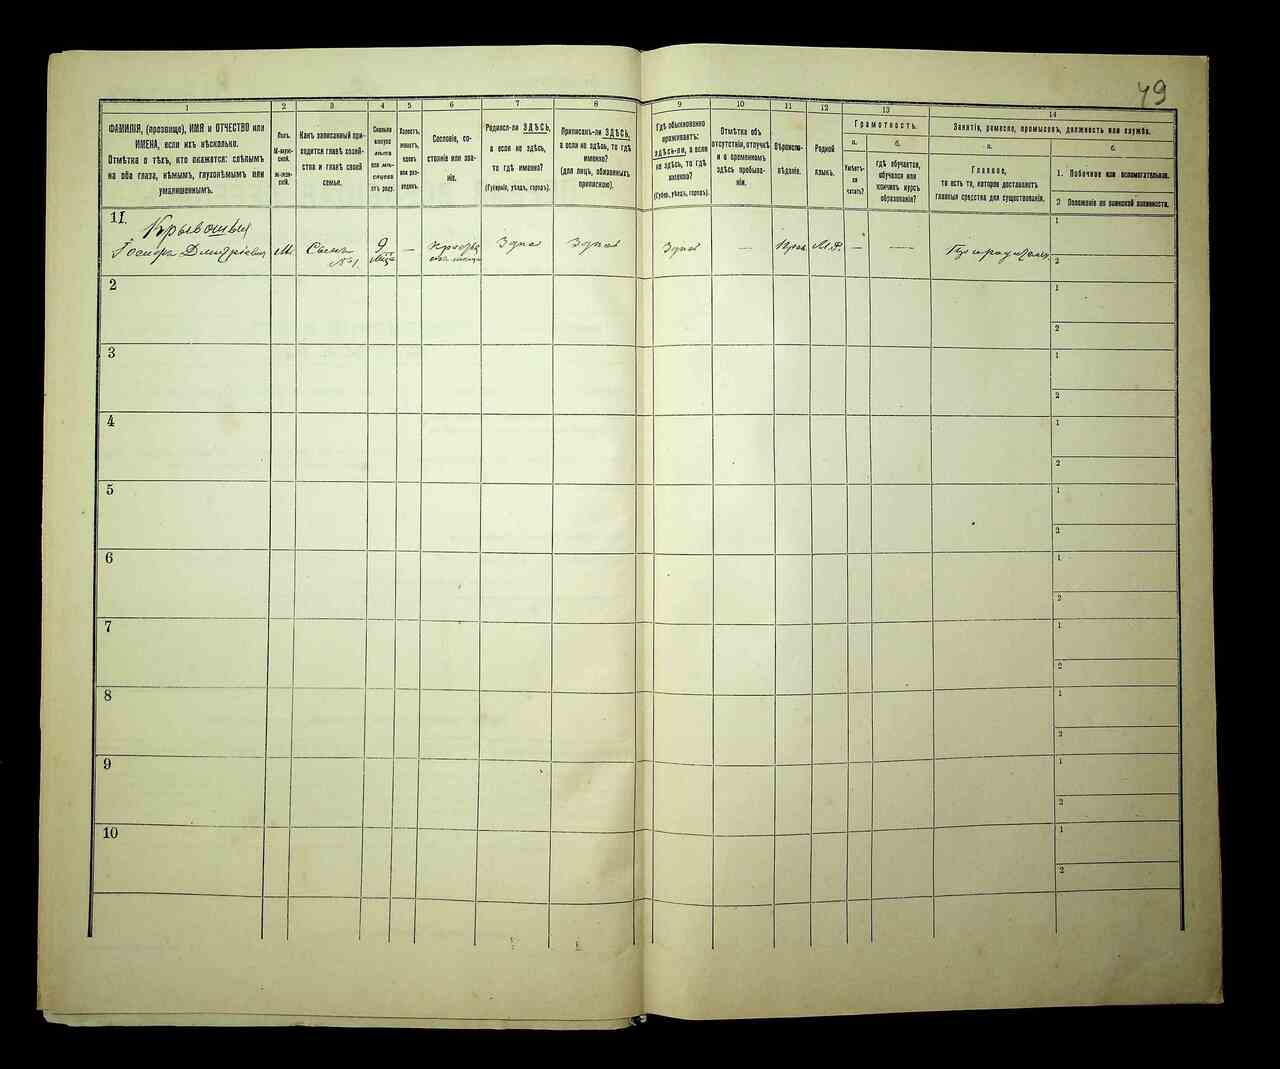 49
1
2
3
4
5
6
7
8
9
10
11
12
13
14
ФАМИЛІЯ, (прозвище), ИМЯ и ОТЧЕСТВО или
ИМЕНА, если ихъ нѣсколько.
Отмѣтка о тѣхъ, кто окажется: слѣпымъ
на оба глаза, нѣмымъ, глухонѣмымъ или
умалишеннымъ.
Полъ.
М-мужской.
Ж-женской.
Какъ записанный при-
ходится главѣ хозяй-
ства и главѣ своей
семьи.
Сколько
минуло
лѣтъ
или мѣ-
сяцевъ
отъ роду.
Холостъ,
женатъ,
вдовъ
или раз-
веденъ.
Сословіе, со-
стояніе или зва-
ніе.
Родился-ли ЗДѢСЬ,
а если не здѣсь,
то гдѣ именно?
(Губернія, уѣздъ, городъ).
Приписанъ-ли ЗДѢСЬ,
а если не здѣсь, то гдѣ
именно?
(для лицъ, обязанныхъ
припискою).
Гдѣ обыкновенно
проживаетъ:
ЗДѢСЬ-ли, а если
не здѣсь, то гдѣ
именно?
(Губер., уѣздъ, городъ).
Отмѣтка объ
отсутствіи, отлучкѣ
и о временномъ
здѣсь пребыва-
ніи.
Вѣроиспо-
вѣданіе.
Родной
языкъ.
Грамотность.
а.
Умѣетъ-
ли
читать?
б.
гдѣ обучается,
обучался или
кончилъ курсъ
образованія?
Занятіе, ремесло, промыселъ, должность или служба.
а.
Главное,
то есть то, которое доставляетъ
главныя средства для существованія.
б.
1. Побочное или вспомогательное.
2 Положеніе по воинской повинности.
11.
Дмитріевъ М Сынъ 9 — Здѣсь Здѣсь Здѣсь — Прав М.Р. — —
№ 1. Мѣс
1
2
2
1
2
3
1
2
4
1
2
5
1
2
6
1
2
7
1
2
8
1
2
9
1
2
10
1
2